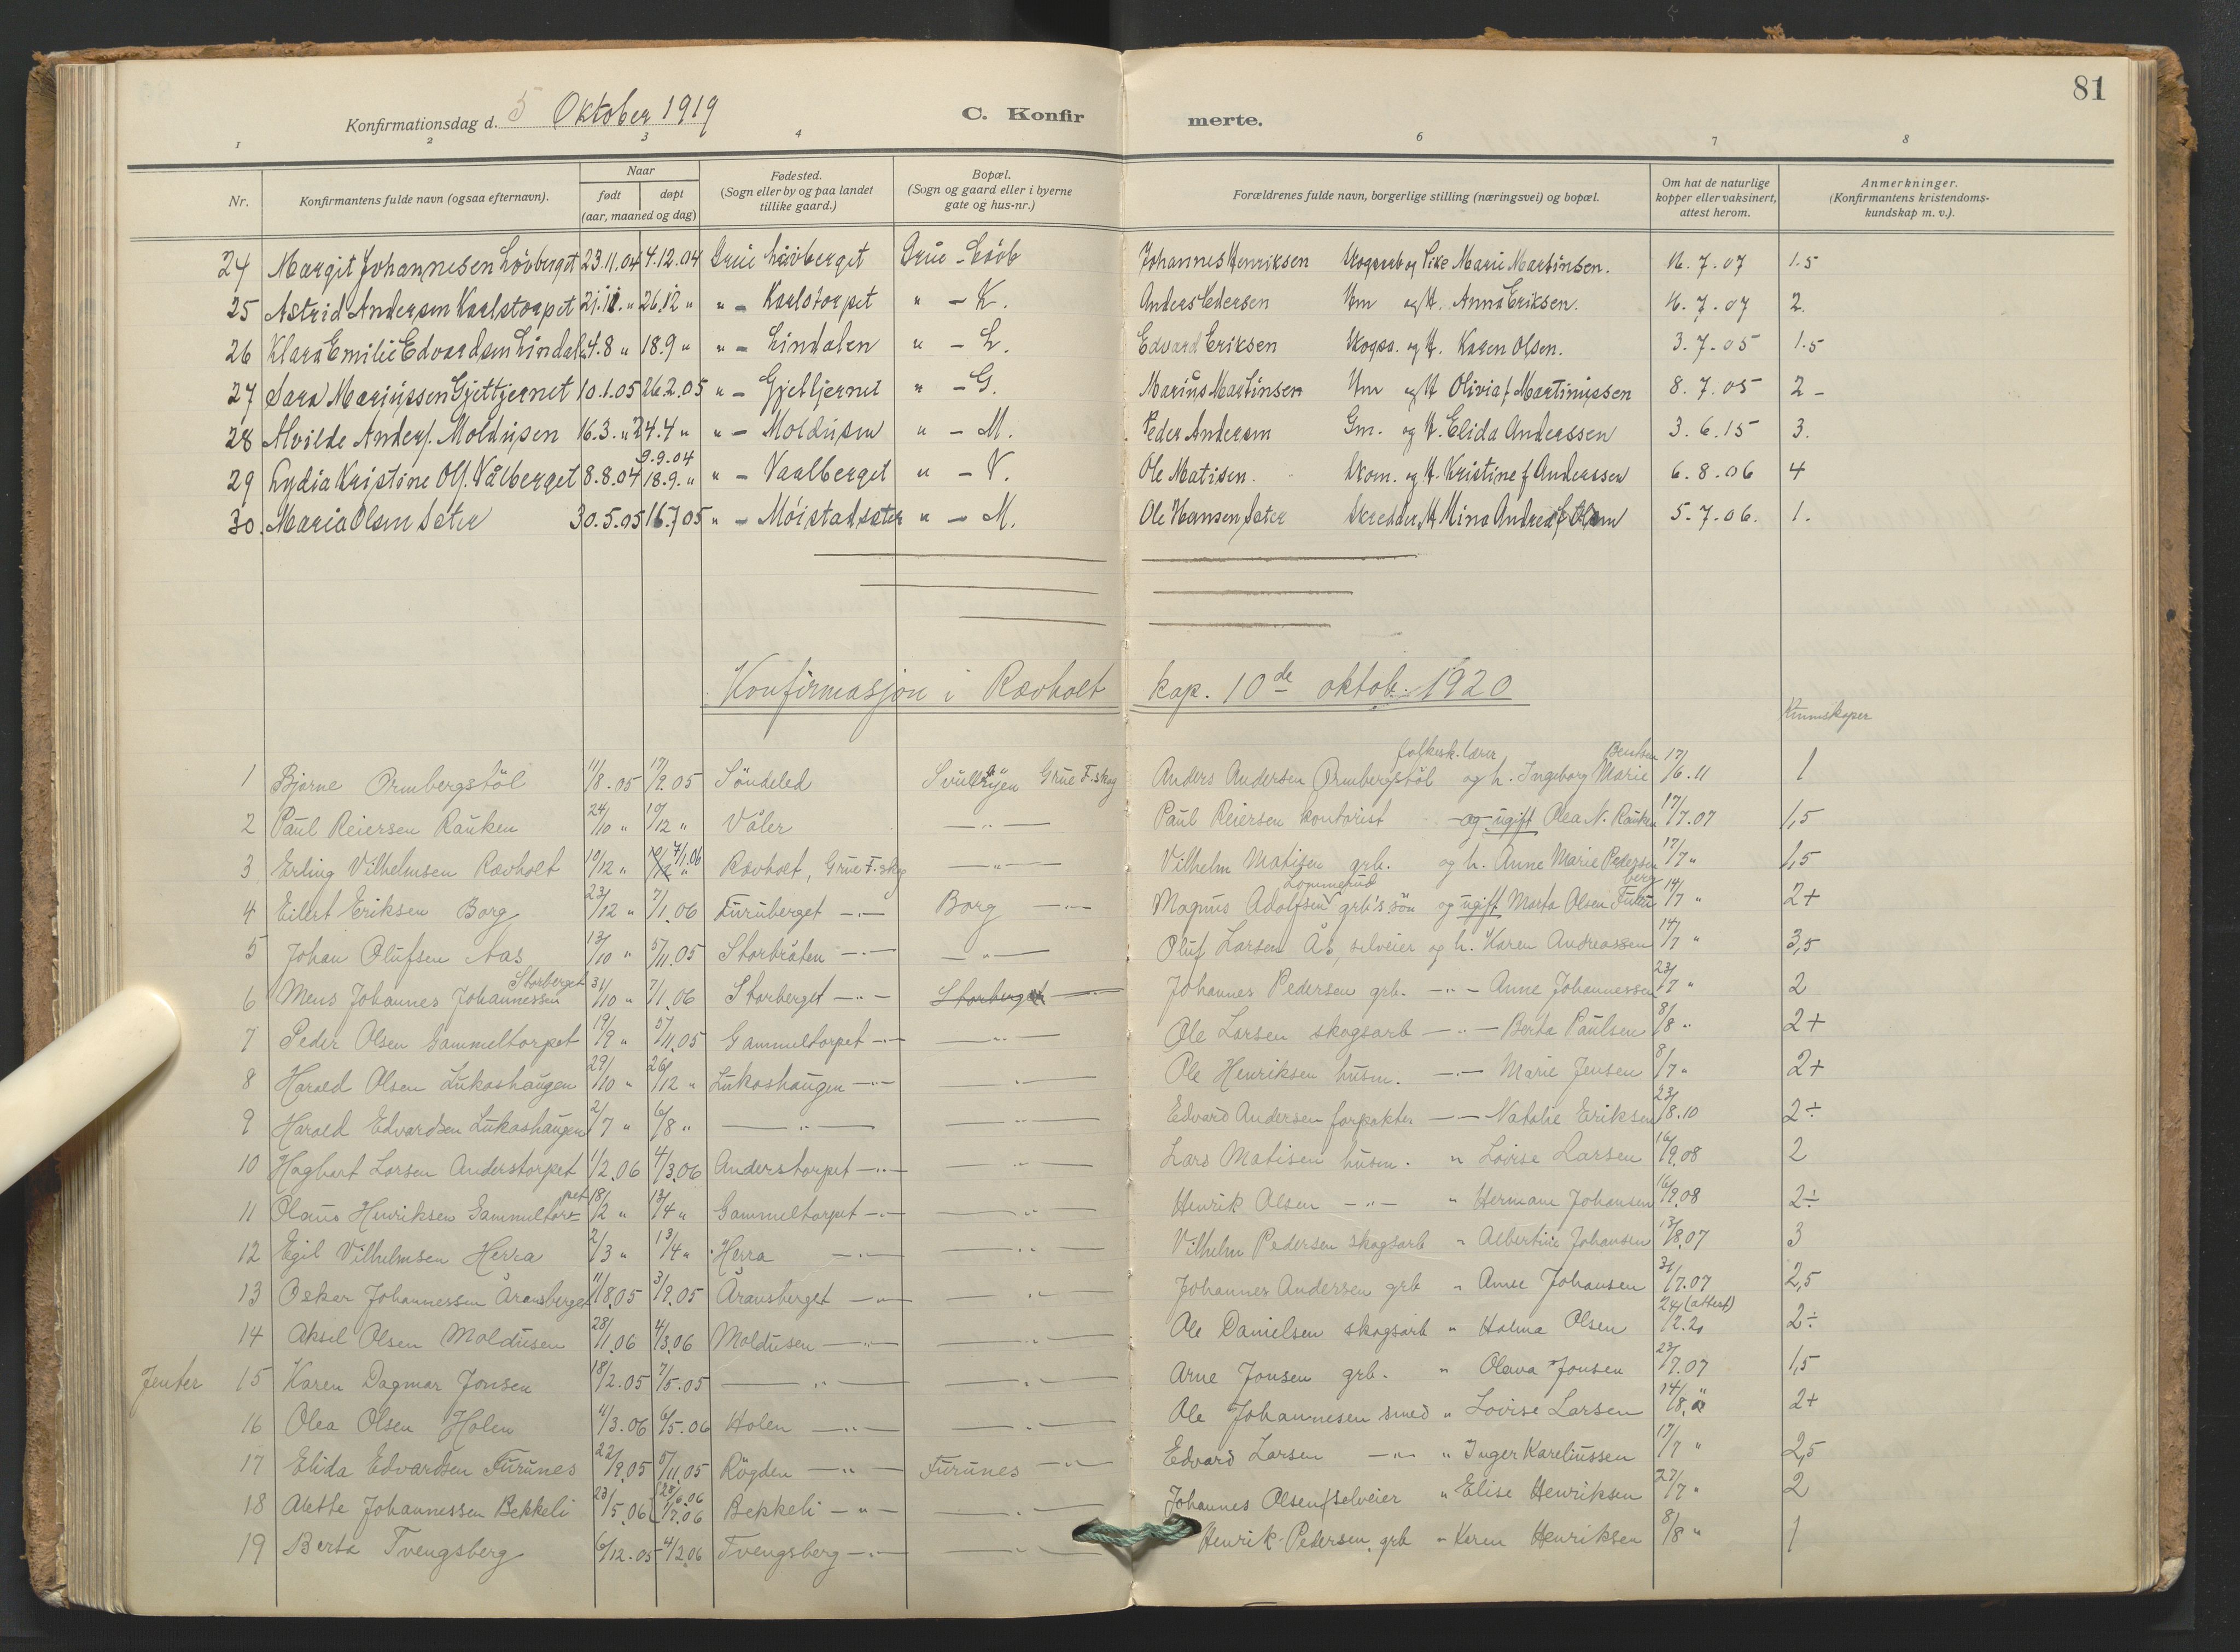 81
Konfirmationsdag d. 5 Oktober 1919 C. Konfirmerte.
1 2 3 4 6 7 8
Nr. Konfirmantens fulde navn (ogsaa efternavn). Naar født døpt (aar, maaned og dag) Fødested. (Sogn eller by og paa landet tillike gaard.) Bopæl. (Sogn og gaard eller i byerne gate og hus-nr.) Forældrenes fulde navn, borgerlige stilling (næringsvei) og bopæl. Om hat de naturlige kopper eller vaksinert, attest herom. Anmerkninger. (Konfirmantens kristendomskundskap m. v.).
24 Margit Johannesen Lövberget 23.11.04 4.12.04 Grue Lövberget Grue - Johannes Henriksen Skogsarb og Marie Martinsen. 7.07 1.5
25 Astrid Andersen Karlstorpet 21.11. " 26.12 " " - Karlstorpet " - K. Anders Edersen og H. Anna Eriksen. 7.07 2.
26 Klara Emilie Edvardsen Lindal 4.8 " 18.9 " " - Lindalen " - L. Edvard Eriksen Skogss. og H. Karen Olsen. 3.7.05 1.5
27 Sara Mariussen Gjettjernet 10.1.05 26.2.05 " - Gjettjernet " - G. Marius Martinsen og H Olivia f Martinussen 8.7.05 2 -
28 Alvilde Anders. Moldusen 16.3. " 24.4 " " - Moldusen " - M. Peder Andersen Gm. og H. Elida Anderssen 3.6.15 3.
29 Lydia Kristine Ols. Vålberget 8.8.04 9.9.04 18.9. " " - Vaalberget " - V. Ole Matisen. Skom. og H. Kristine f Anderssen 6.8.06 4
30. Maria Olsen Sæter 30.5.05 16.7.05 " - Möistadsæter " - M. Ole Hansen Sæter Skredder H Mina Andrea f Olsen 5.7.06. 1.
Konfirmasjon i Rævholt kap. 10de oktob. 1920
Kunnskaper
1 Bjarne Ormbergstöl 11/8.05 17/9.05 Söndeled Svullryen Grue F.skog Anders Andersen Ormbergstöl folkesk. lærer og h. Ingeborg Marie Bentsen 17/6.11 1
2 Paul Reiersen Rauken 24/10 " 10/12 " Våler - " - Paul Reiersen kontorist og ugift Olea N. Rauken 17/7.07 1,5
3 Erling Vilhelmsen Rævholt 19/12 " 7/1.06 Rævholt, Grue F.skog - " - Vilhelm Matisen grb. og h. Anne Marie Pedersen 17/7 " 1,5
4 Eilert Eriksen Borg 23/12 " 7/1.06 Furuberget - " - Borg - " - Magnus Adolfsen Lommerud grb's sön og ugift Marta Olsen Furuberg 14/7 " 2+
5 Johan Olufsen Aas 13/10 " 5/11.05 Storbråten - " - - " - Oluf Larsen Ås, selveier og h. Karen Andreassen 14/7 " 3,5
6 Mens Johannes Johannessen Storberget 31/10 " 7/1.06 Storberget - " - Storberget Johannes Pedersen grb. - " - Anne Johannessen 23/7 " 2
7 Peder Olsen Gammeltorpet 19/9 " 5/11.05 Gammeltorpet - " - - " - Ole Larsen skogsarb - " - Berta Paulsen 8/8 " 2+
8 Harald Olsen Lukashaugen 29/10 " 26/12 " Lukashaugen - " - - " - Ole Henriksen husm. - " - Marie Jensen 8/7 " 2+
9 Harald Edvardsen Lukashaugen 2/7 " 6/8 " - " - - " - Edvard Andersen forpakter - " - Natalie Eriksen 23/8.10 2÷
10 Hagbart Larsen Anderstorpet 1/2.06 4/3.06 Anderstorpet - " - - " - Lars Matisen husm. " Lovise Larsen 16/9.08 2
11 Olaus Henriksen Gammeltorpet 18/2 " 13/4 " Gammeltorpet - " - - " - Henrik Olsen - " - " Hermane Johansen 16/9.08 2÷
12 Egil Vilhelmsen Herra 2/3 " 13/4 " Herra - " - - " - Vilhelm Pedersen skogsarb " Albertine Johansen 13/8.07 3
13 Oskar Johannessen Åransberget 11/8.05 3/9.05 Åransberget - " - - " - Johannes Andersen grb " Anne Johansen 31/7.07 2,5
14 Aksel Olsen Moldusen 28/1.06 4/3.06 Moldusen - " - - " - Ole Danielsen skogsarb " Halma Olsen 24/2.20 (attest) 2÷
Jenter 15 Karen Dagmar Jonsen 18/2.05 7/5.05 - " - - " - Arne Jonsen grb. " Olava Jonsen 23/7.07 1,5
16 Olea Olsen Holen 4/3.06 6/5.06 Holen - " - - " - Ole Johannesen smed " Lovise Larsen 14/8. " 2+
17 Elida Edvardsen Furunes 22/9.05 5/11.05 Rögden - " - Furunes - " - Edvard Larsen - " - " Inger Kareliussen 17/7 " 2,5
18 Alette Johannessen Bekkeli 23/5.06 Bekkeli - " - - " - Johannes Olsen selveier " Elise Henriksen 27/7 " 2
19 Berta Tvengsberg 6/12.05 4/2.06 Tvengsberg - " - - " - Henrik Pedersen, grb " Keren Henriksen 8/8 " 1